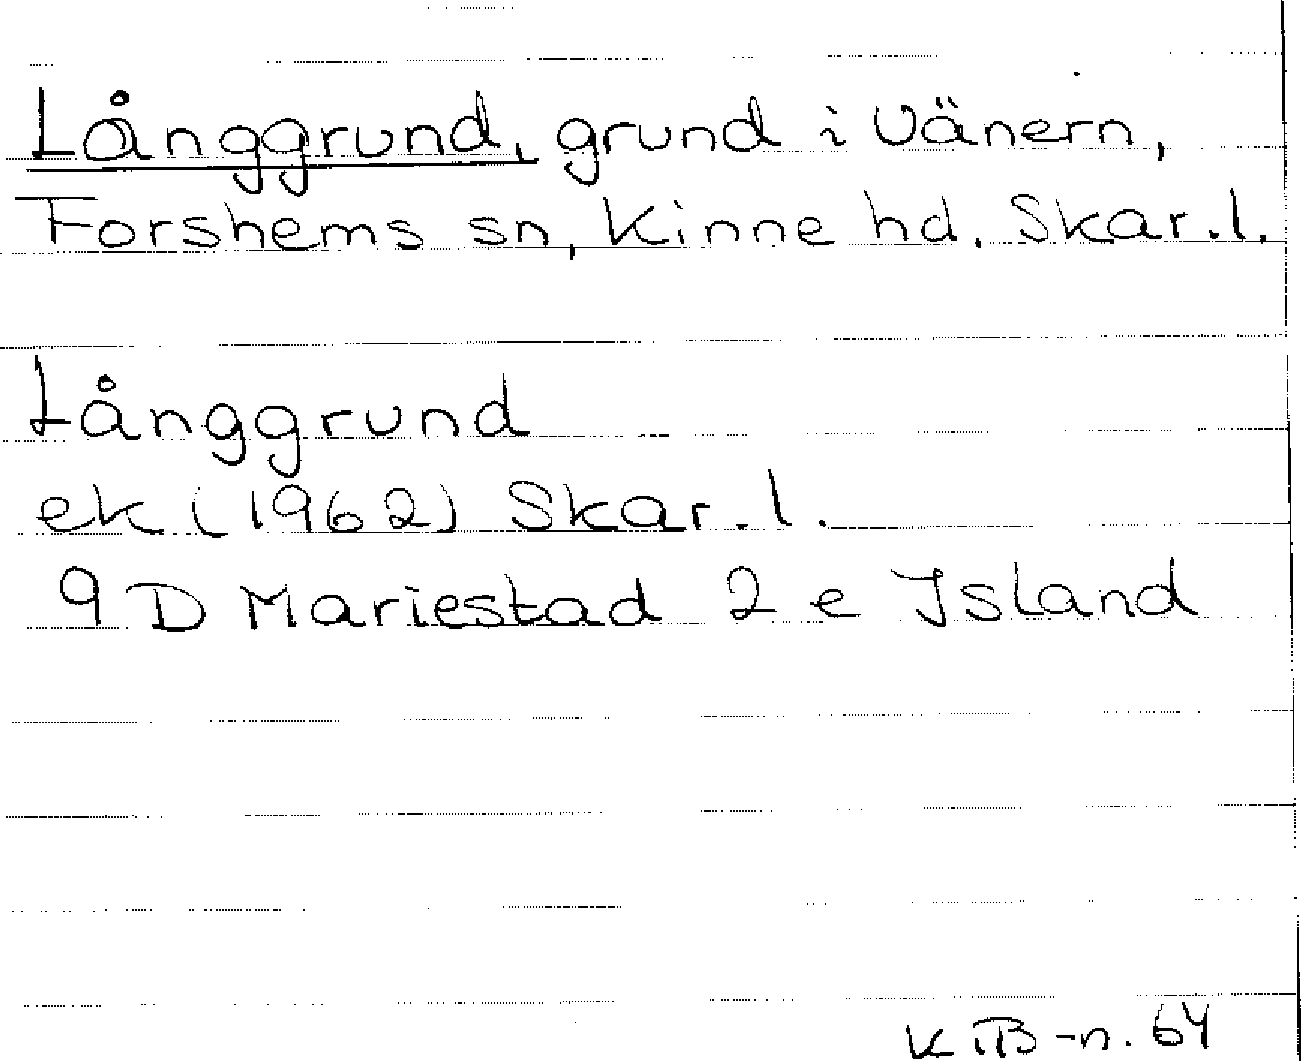 Långgrund, grund i Vänern,
Forshems sn, Kinne hd. Skar.l.
Långgrund
ek (1962) Skar.l.
9 D Mariestad 2 e Island
K iB-n. 64